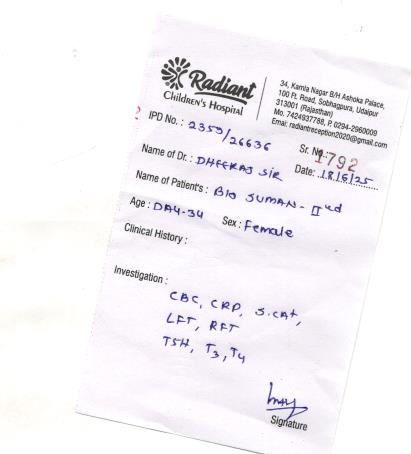 Radiant
Children's Hospital
34, Kamla Nagar B/H Ashoka Palace,
100 Ft. Road, Sobhagpura, Udaipur
313001 (Rajasthan)
Mo. 7424937788, P. 0294-2960009
Emai: radiantreception2020@gmail.com
IPD No. : 2353/26636
Sr. No. 1792
Name of Dr. : DHEERAJ SIR
Date: 18/6/25
Name of Patient's : B/O SUMAN - II nd
Age : DAY-34 Sex : Female
Clinical History :
Investigation :
CBC, CRP, S.Cat,
LFT, RFT
TSH, T3, T4
Signature